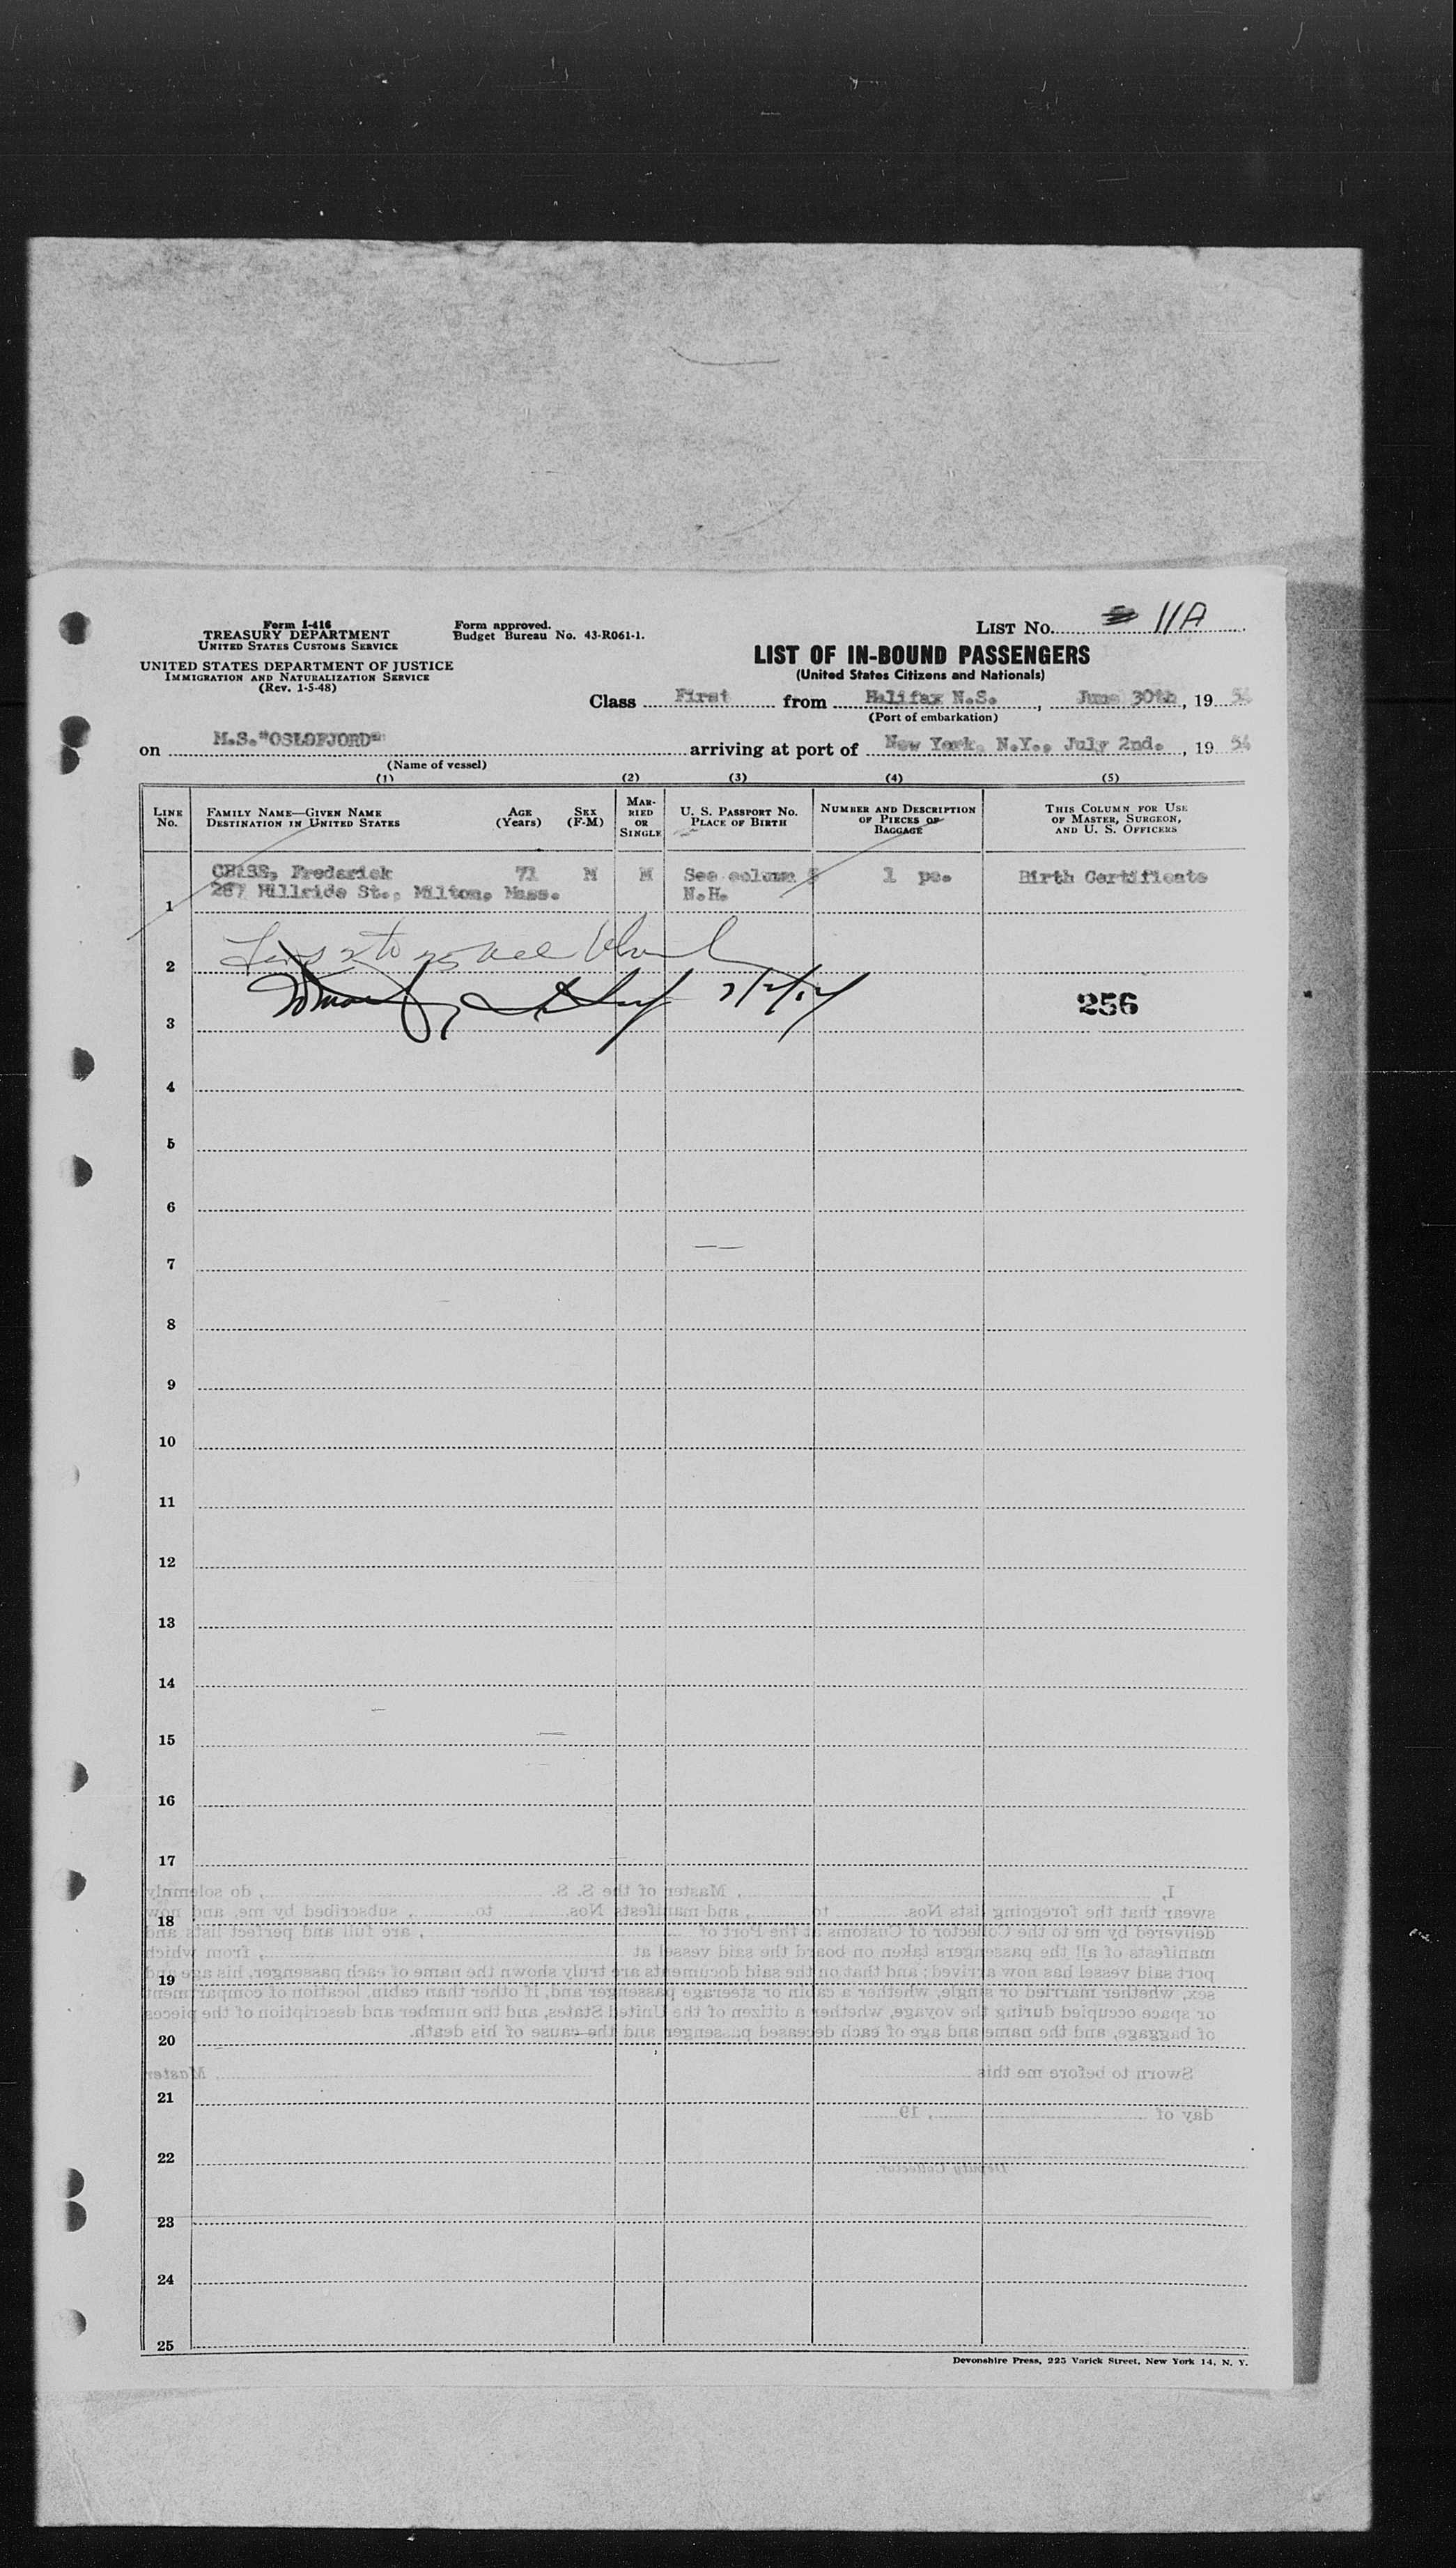 Form I-416
TREASURY DEPARTMENT
UNITED STATES CUSTOMS SERVICE
UNITED STATES DEPARTMENT OF JUSTICE
IMMIGRATION AND NATURALIZATION SERVICE
(Rev. 1-5-48)
Form approved.
Budget Bureau No. 43-R061-1.
LIST NO. 11A
LIST OF IN-BOUND PASSENGERS
(United States Citizens and Nationals)
Class First from Halifax N.S. , June 30th , 19 54
(Port of embarkation)
on M.S."OSLOFJORD" arriving at port of New York, N.Y., July 2nd. , 19 54
(Name of vessel)
(1) (2) (3) (4) (5)
LINE No.
FAMILY NAME—GIVEN NAME
DESTINATION IN UNITED STATES
AGE (Years)
SEX (F-M)
MARRIED OR SINGLE
U. S. PASSPORT NO.
PLACE OF BIRTH
NUMBER AND DESCRIPTION OF PIECES OF BAGGAGE
THIS COLUMN FOR USE OF MASTER, SURGEON, AND U. S. OFFICERS
1 Frederick 71 M M See column 5 1 pc. Birth Certificate
287 Hillside St., Milton, Mass. N.H.
2 Lines 2 to 25 all blank
3 7/2/54 256
4
5
6
7
8
9
10
11
12
13
14
15
16
17
I, , Master of the S. S. , do solemnly
swear that the foregoing lists Nos. to , and manifests Nos. to , subscribed by me, and now
18
delivered by me to the Collector of Customs at the Port of , are full and perfect lists and
manifests of all the passengers taken on board the said vessel at , from which
port said vessel has now arrived; and that on the said documents are truly shown the name of each passenger, his age and
19
sex, whether married or single, whether a cabin or steerage passenger and, if other than cabin, location of compartment
or space occupied during the voyage, whether a citizen of the United States, and the number and description of the pieces
of baggage, and the name and age of each deceased passenger and the cause of his death.
20
Sworn to before me this , Master
21
day of , 19
22
Deputy Collector.
23
24
25
Devonshire Press, 225 Varick Street, New York 14, N. Y.